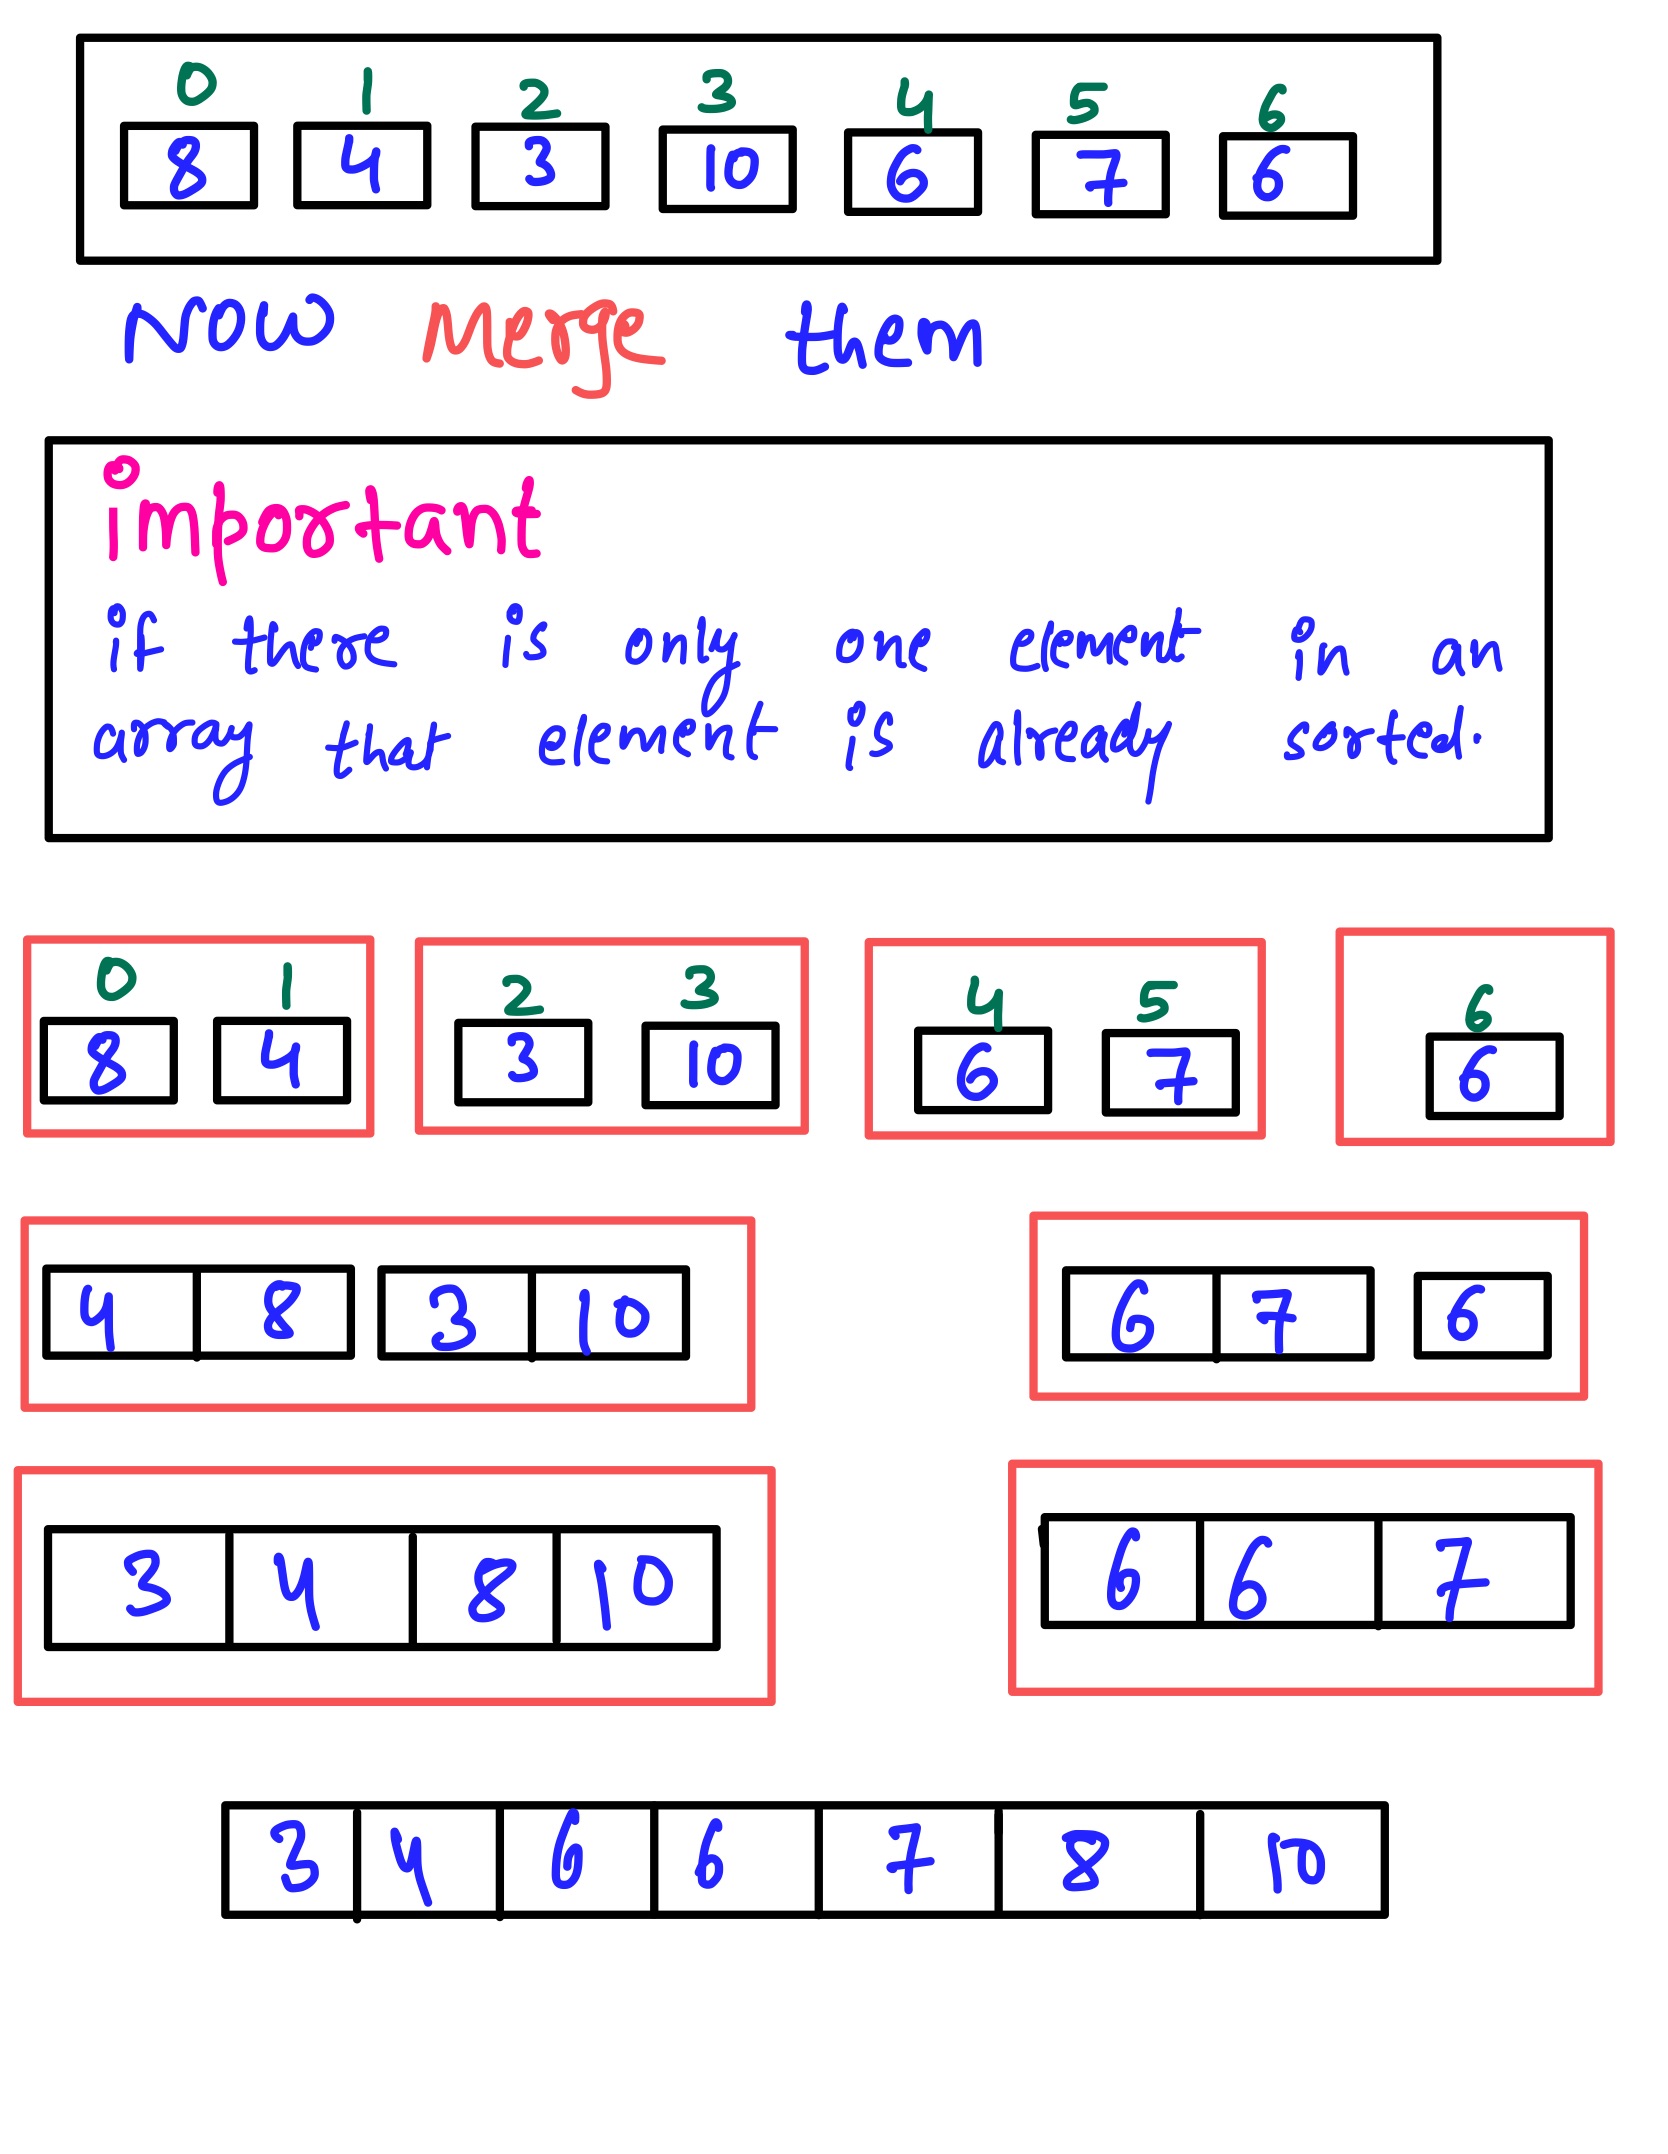 0 1 2 3 4 5 6
8 4 3 10 6 7 6
Now Merge them
important
if there is only one element in an
array that element is already sorted.
0 1 2 3 4 5 6
8 4 3 10 6 7 6
4 8 3 10 6 7 6
3 4 8 10 6 6 7
3 4 6 6 7 8 10